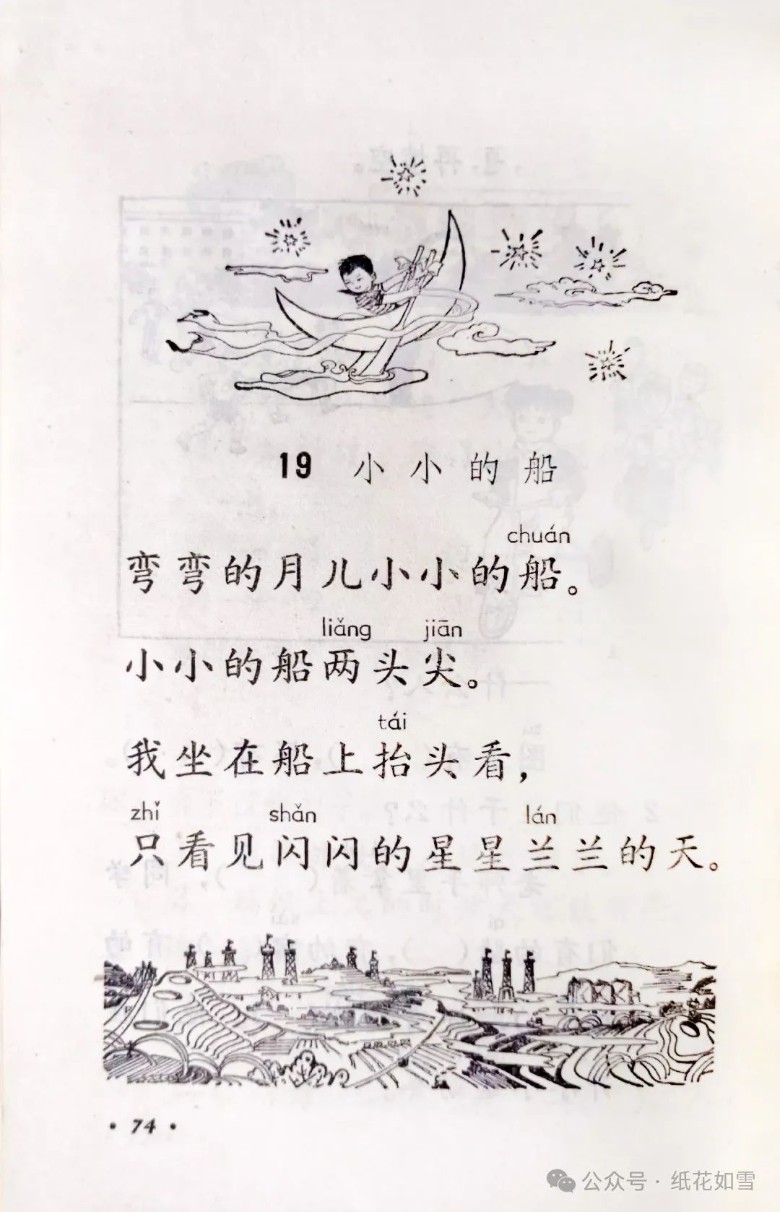 19 小小的船
chuán
弯弯的月儿小小的船。
liǎng jiān
小小的船两头尖。
tái
我坐在船上抬头看，
zhǐ shǎn lán
只看见闪闪的星星兰兰的天。
· 74 ·
公众号 · 纸花如雪